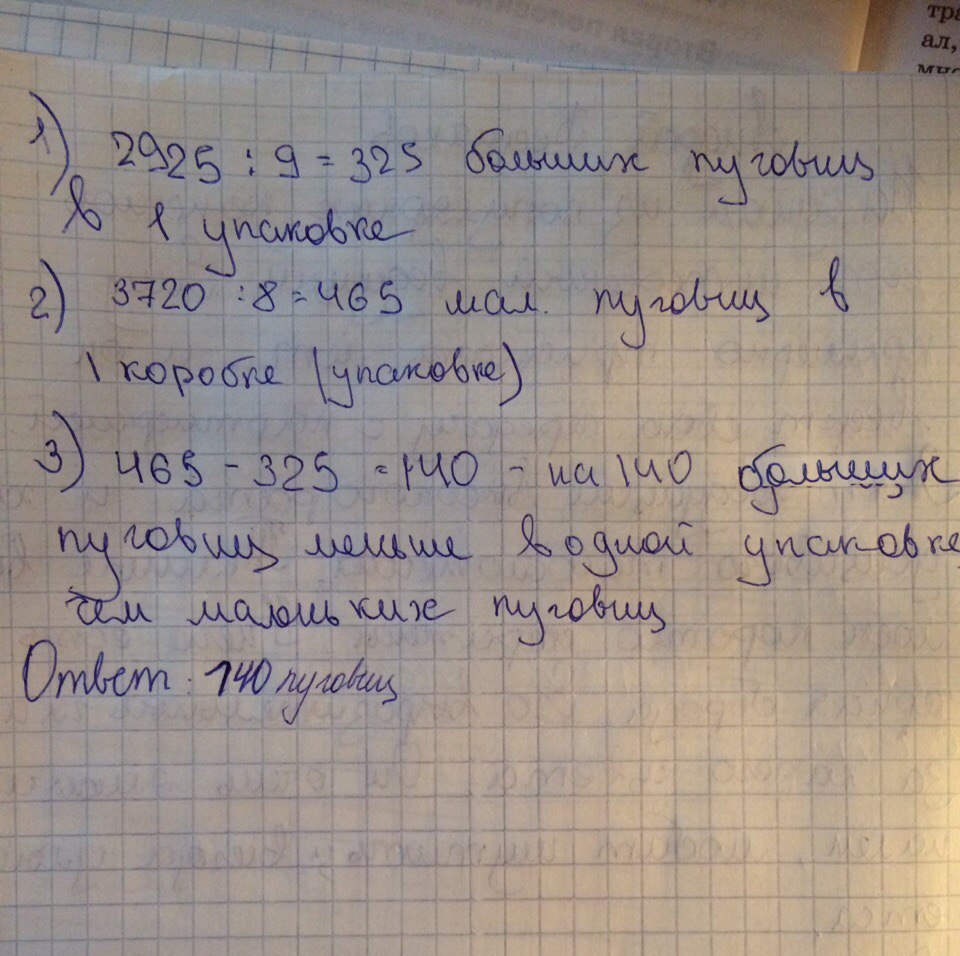 тра
ал,
1) 2925 : 9 = 325 больших пуговиц
в 1 упаковке
2) 3720 : 8 = 465 мал. пуговиц в
1 коробке (упаковке)
3) 465 - 325 = 140 - на 140 больших
пуговиц меньше в одной упаковке,
чем маленьких пуговиц
Ответ: 140 пуговиц